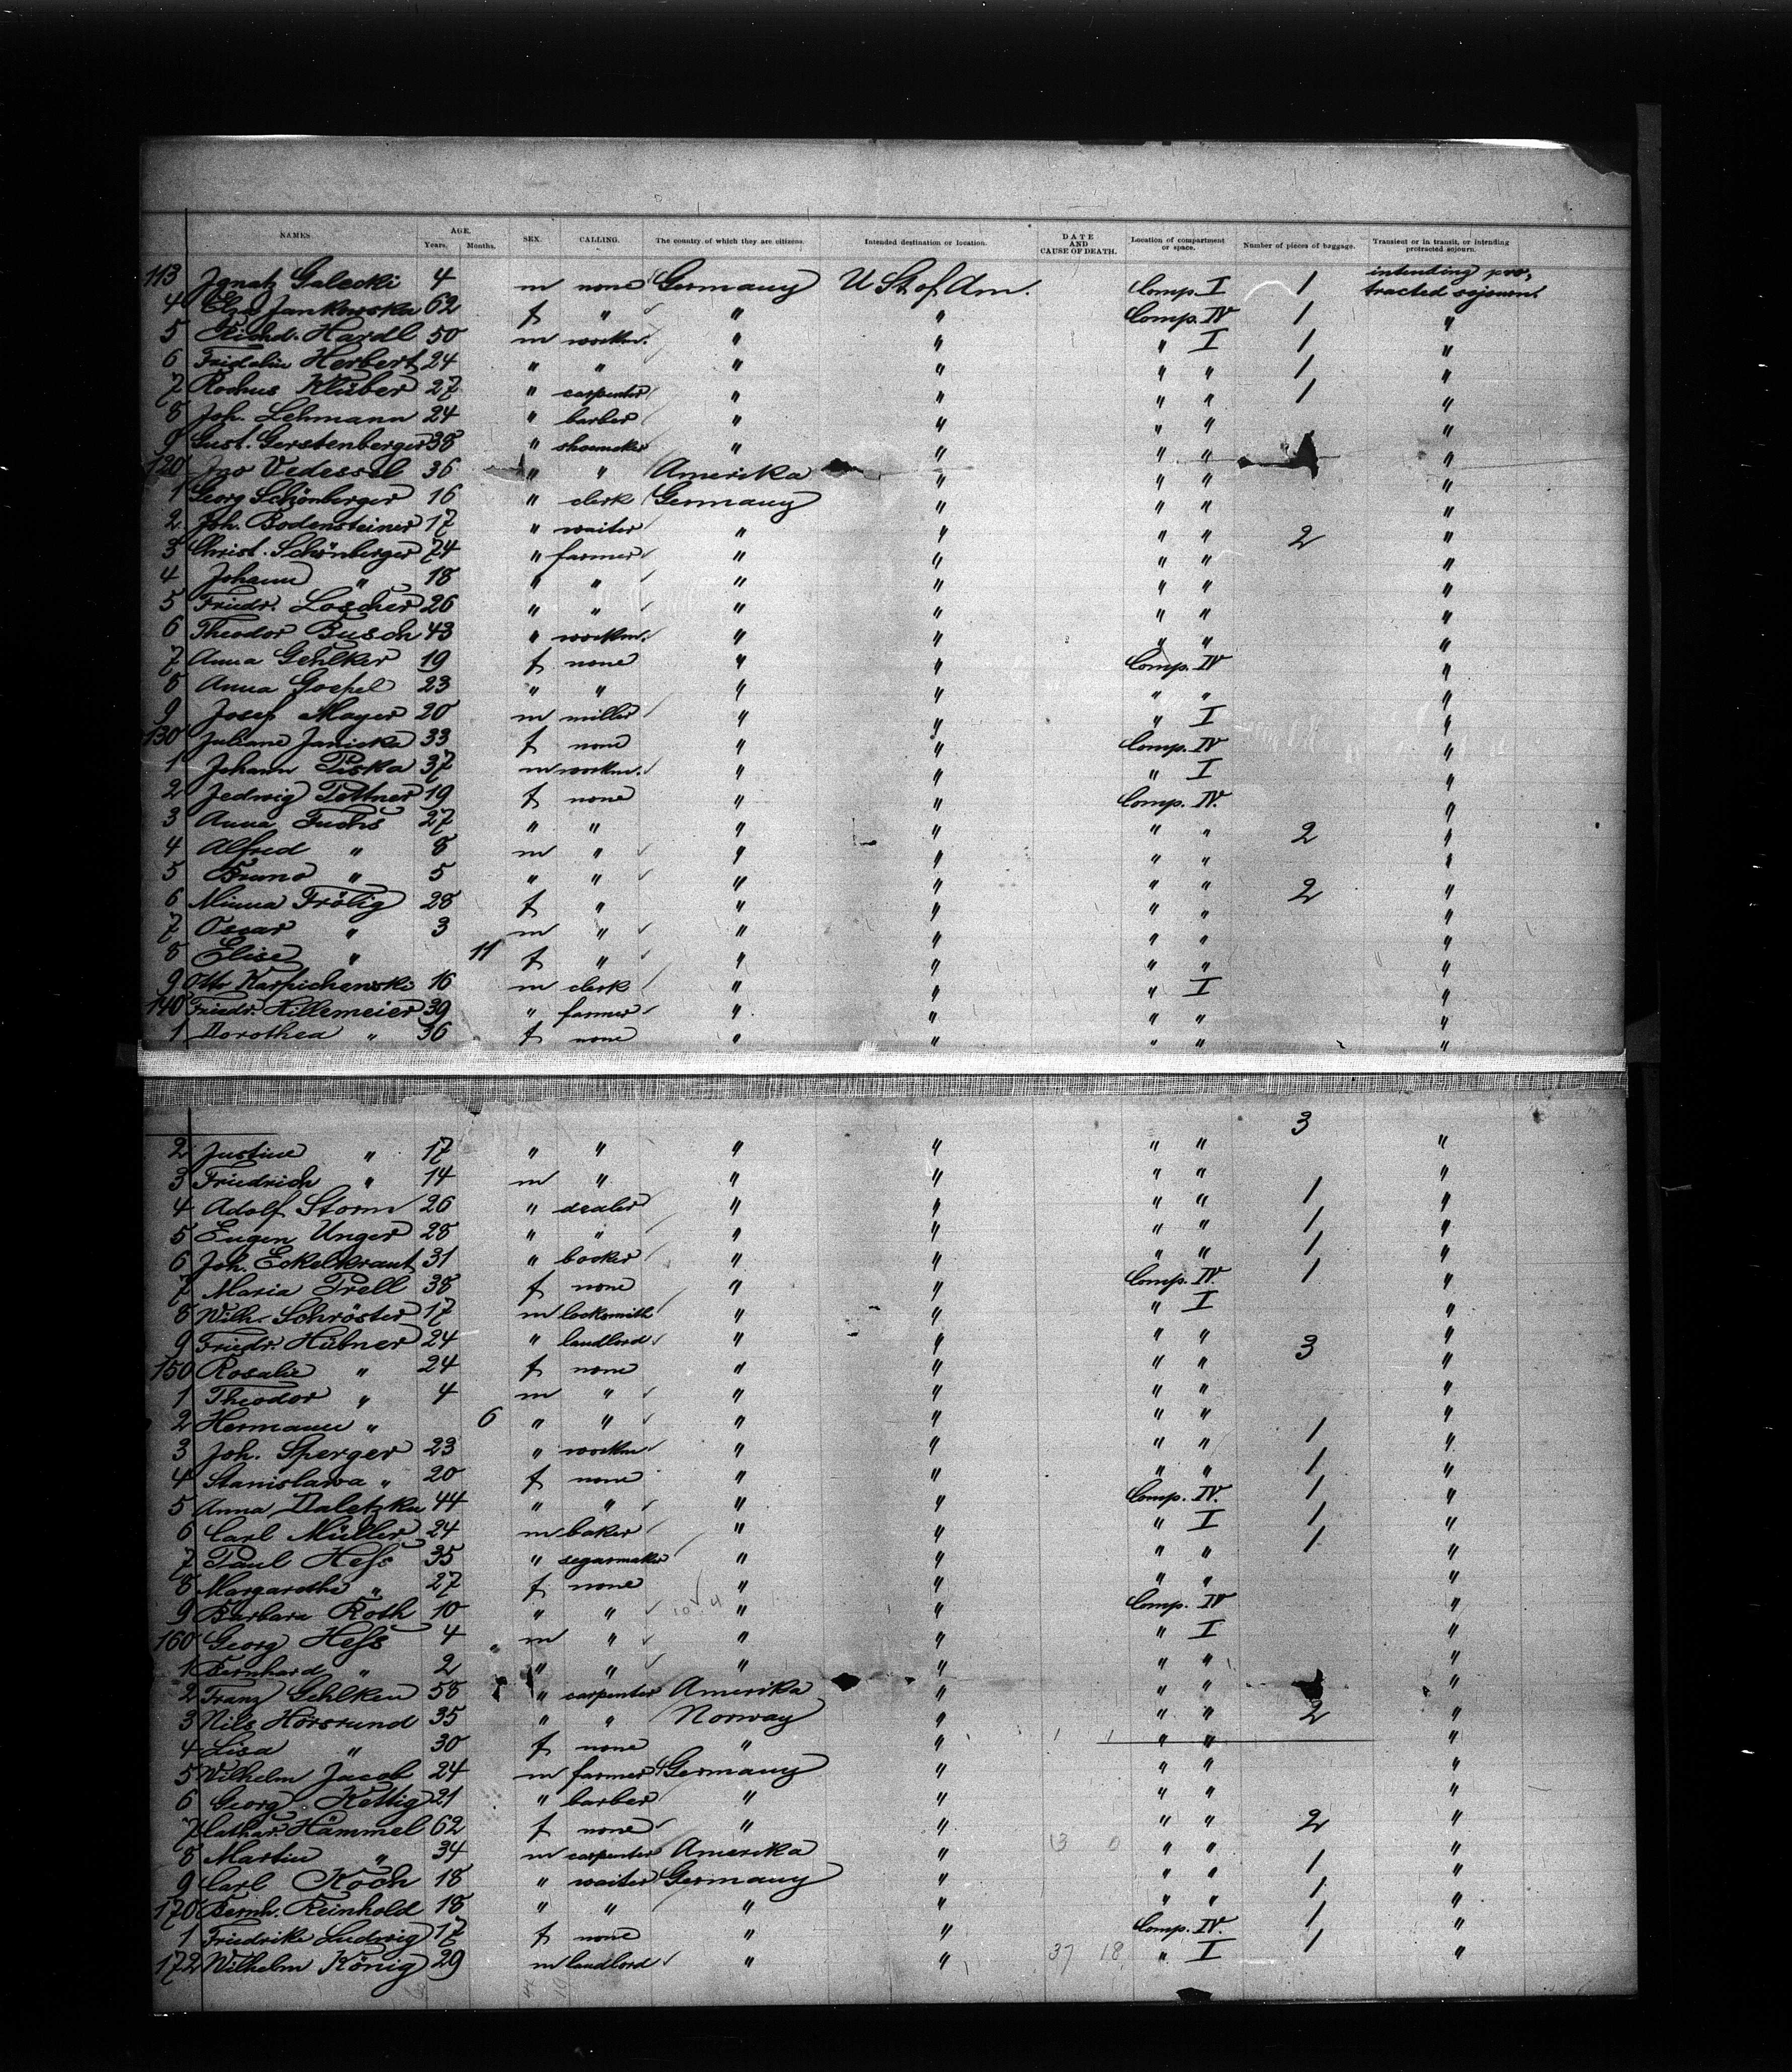 NAMES. AGE. Years. Months. SEX. CALLING. The country of which they are citizens. Intended destination or location. DATE AND CAUSE OF DEATH. Location of compartment or space. Number of pieces of baggage. Transient or in transit, or intending protracted sojourn.
113 Ignatz Galecki 4 m none Germany U St of Am. Comp. I 1 intending protracted sojourn.
4 Jankowska 62 f " " " Comp. IV 1 "
5 Hardl 50 m workm. " " " I 1 "
6 Herbert 24 " " " " " " 1 "
7 Rochus Klüber 27 " carpenter " " " " 1 "
8 Joh. Lehmann 24 " barber " " " " "
9 Gust. Gerstenberger 38 " shoemaker " " " " "
120 Jno 36 " " Amerika " " " "
1 Georg Schönberger 16 " clerk Germany " " " "
2 Joh. Bodensteiner 17 " waiter " " " " 2 "
3 Christ. Schönberger 74 " farmer " " " " "
4 Johann " 18 " " " " " " "
5 Friedr. Loscher 26 " " " " " " "
6 Theodor Busch 43 " workm. " " " " "
7 Anna Gehlker 19 f none " " Comp. IV "
8 Anna Goepel 23 " " " " " " "
9 Josef Mayer 20 m miller " " " I "
130 Juliane Janicka 33 f none " " Comp. IV "
1 Johann Piska 37 m workm. " " " I "
2 Jedwig Pettner 19 f none " " Comp. IV. "
3 Anna Fuchs 27 " " " " " " 2 "
4 Alfred " 8 m " " " " " "
5 Bruno " 5 " " " " " " "
6 Minna Frölig 28 f " " " " " 2 "
7 Oscar " 3 m " " " " " "
8 Elise " 11 f " " " " " "
9 Otto Karpichenski 16 m clerk " " " I "
140 Friedr. Hillemeier 39 " farmer " " " " "
1 Dorothea " 36 f none " " " " "
3
2 Justine " 17 " " " " " " "
3 Friedrich " 14 m " " " " " "
4 Adolf Storm 26 " dealer " " " " 1 "
5 Eugen Unger 28 " " " " " " 1 "
6 Joh. Eckelkraut 31 " " " " " 1 "
7 Maria Prell 38 f none " " Comp. IV. 1 "
8 Wilh. Schröster 17 m locksmith " " " I "
9 Friedr. Hübner 24 " landlord " " " " 3 "
150 Rosalie " 24 f none " " " " "
1 Theodor " 4 m " " " " " "
2 Hermann " 6 " " " " " " "
3 Joh. Sperger 23 " workm " " " " 1 "
4 Stanislawa " 20 f none " " " " 1 "
5 Anna Daletzka 44 " " " " Comp. IV. 1 "
6 Carl Müller 24 m baker " " " I 1 "
7 Paul Hess 35 " segarmaker " " " " 1 "
8 Margarethe " 27 f none " " " " "
9 Barbara Roth 10 " " " " Comp. IV "
160 Georg Hess 4 " m " " " " I "
1 Bernhard " 2 " " " " " " "
2 Franz Gehlken 58 " carpenter Amerika " " " "
3 Nils 35 " " Norway " " " 2 "
4 Lisa " 30 f none " " " " "
5 Wilhelm Jacob 24 m farmer Germany " " " "
6 Georg Kettig 21 " barber " " " " "
7 Cathar. Hammel 62 f none " " " " 2 "
8 Martin " 34 m carpenter Amerika " " " "
9 Carl Koch 18 " waiter Germany " " " 1 "
170 Bernh. Reinhold 18 " " " " " " 1 "
1 Friedrike Ludwig 17 f none " " Comp. IV. 1 "
172 Wilhelm König 29 m landlord " " 37 18 " I 1 "